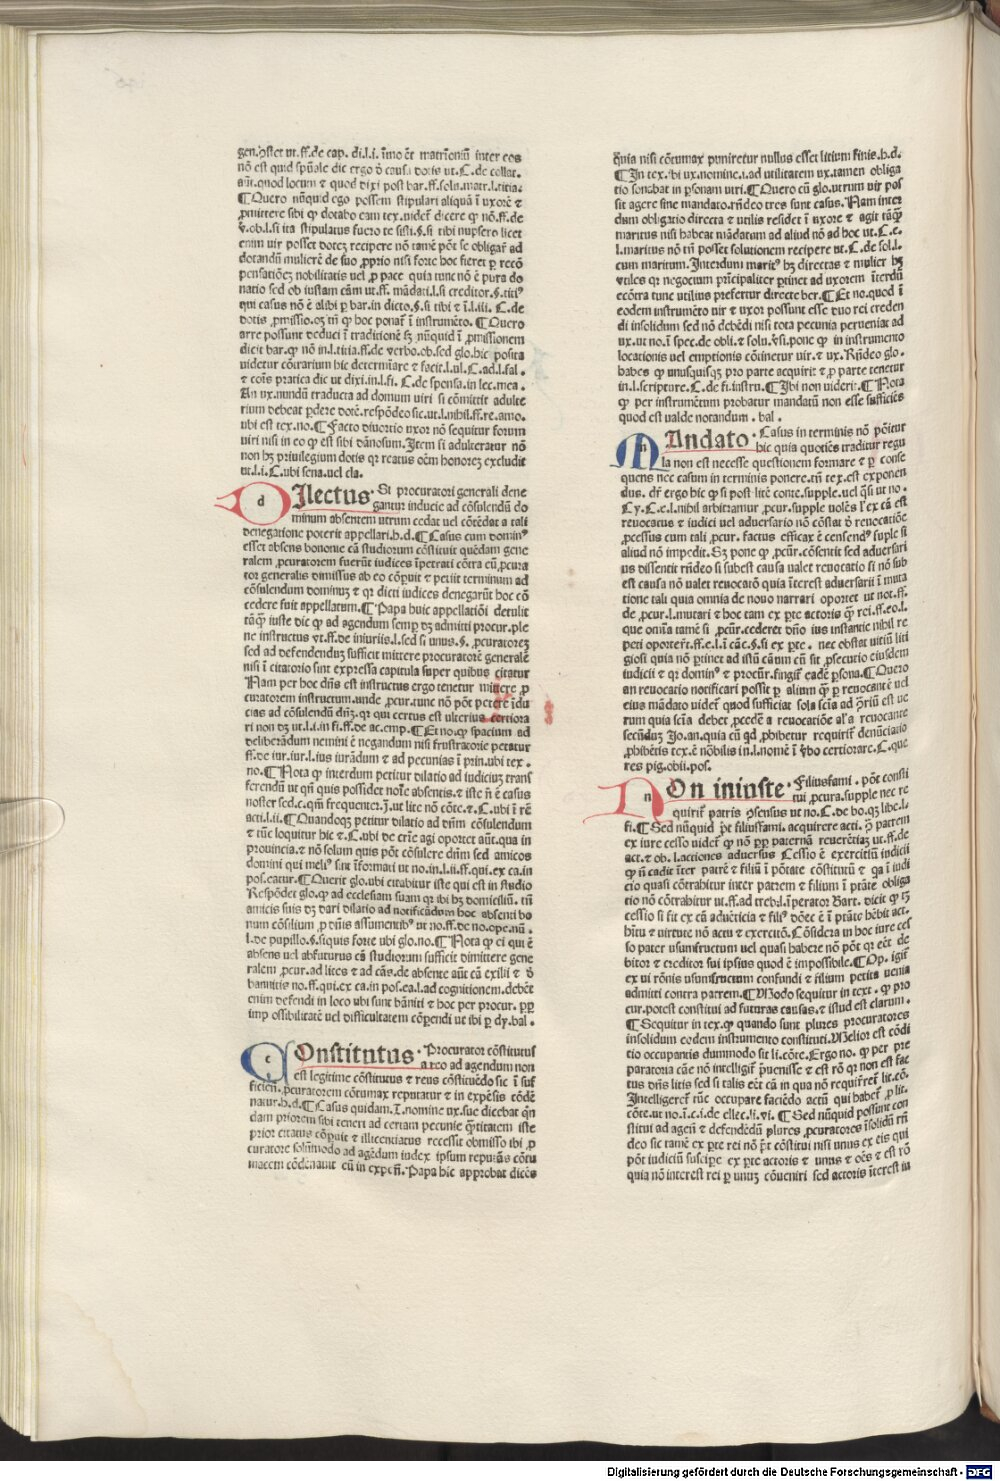 gen.ꝯſtet ut.ff.de cap. di.l.i. īmo ēt matrīoniū inter eos
nō eſt quid ſpūale dic ergo ꝺ̄ cauſa dotis ut.C.de collat.
aūt.quod locum ⁊ quod dixi poſt bar.ff.ſolu.matr.l.titia.
¶Quero nūquid ego poſſem ſtipulari aliquā ī uxorē ⁊
ꝓmittere ſibi ꝙ dotabo eam tex.uidet̄ dicere ꝙ nō.ff.de
v̄.ob.l.ſi ita ſtipulatus fuero te ſiſti.§.ſi tibi nupſero licet
enim uir poſſet dotez recipere nō tamē pōt ſe obligar̄ ad
dotandū mulierē de ſuo ꝓprio niſi forte hoc fieret ꝑ recō
penſationēz nobilitatis uel ꝓ pace quia tunc nō ē pura do
natio ſed ob iuſtam cām ut.ff. mādati.l.ſi creditor.§.titiꝰ
qui caſus nō ē alibi ꝑ bar.in dicto.§.ſi tibi ⁊ ī.l.iii. C.de
dotis ꝓmiſſio.oꝫ tn̄ ꝙ hoc ponat̄ ī inſtrumēto.¶Quero
arre poſſunt deduci ī traditionē ſꝫ nūquid ī ꝓmiſſionem
dicit bar.ꝙ nō in.l.titia.ff.de verbo.ob.ſed glo.hic poſita
uidetur cōtrarium hic determīare ⁊ facit.l.ul.C.ad.l.fal.
⁊ coīs pratica dic ut dixi in.l.fi. C.de ſponſa.in lec.mea.
An ux.nundū traducta ad domum uiri ſi cōmittit adulte
rium debeat ꝑdere dotē.reſpōdeo ſic.ut.l.nihil.ff.re.amo.
ubi eſt tex.no.¶Facto diuortio uxor nō ſequitur forum
uiri niſi in eo ꝙ eſt ſibi dānoſum.Item ſi adulteratur nō
non hꝫ priuilegium dotis qꝛ reatus oēm honorez excludit
ut.l.i.C.ubi ſena.uel cla.
d
Ilectus. Si procuratori generali dene
gantur inducie ad cōſulendū do
minum abſentem utrum cedat uel cōtēdat a tali
denegatione poterit appellari.h.d.¶Caſus cum dominꝰ
eſſet abſens bononie cā ſtudiorum cōſtituit quēdam gene
ralem ꝓcuratorem fuerūt iudices īpetrati cōtra eū ꝓcura
tor generalis dimiſſus ab eo cōꝑuit ⁊ petiit terminum ad
cōſulendum dominuꝫ ⁊ qꝛ dicti iudices denegarūt hoc cō
cedere fuit appellatum.¶Papa huic appellatiōi detulit
tāq̄ iuſte dic ꝙ ad agendum ſemꝑ dꝫ admitti procur.ple
ne inſtructus vt.ff.de iniuriis.l.ſed ſi unus.§. ꝓcuratoreꝫ
ſed ad defendenduꝫ ſufficit mittere procuratorē generalē
niſi ī citatorio ſint expreſſa capitula ſuper quibus citatur
Nam per hoc dn̄s eſt inſtructus ergo tenetur mittere ꝓ
curatorem inſtructum.unde ꝓcur.tunc nō pōt petere īdu
cias ad cōſulendū dn̄ꝫ.qꝛ qui certus eſt ulterius certiora
ri non dꝫ ut.l.i.in fi.ff.de ac.emp.¶Et no.ꝙ ſpacium ad
deliberādum nemini ē negandum niſi fruſtratorie petatur
ff.de iur.iur.l.ius iurādum ⁊ ad pecunias ī prin.ubi tex.
no.¶Nota ꝙ interdum petitur dilatio ad iudiciuꝫ tranſ
ferendū ut qn̄ quis poſſidet noīe abſentis.⁊ iſte n̄ ē caſus
noſter ſed.c.qm̄ frequenter.ī.ut lite nō cōte.⁊.C.ubi ī rē
acti.l.ii.¶Quandoqꝫ petitur dilatio ad dn̄m cōſulendum
⁊ tūc loquitur hic ⁊.C.ubi de crīe agi oportet aūt.qua in
prouincia.⁊ nō ſolum quis pōt cōſulere dn̄m ſed amicos
domini qui meliꝰ ſint īformati ut no.in.l.ii.ff.qui.ex ca.in
poſ.eatur.¶Querit glo.ubi citabitur iſte qui eſt in ſtudio
Reſpōdet glo.ꝙ ad eccleſiam ſuam qꝛ ibi hꝫ domiciliū. tn̄
amicis ſuis dꝫ dari dilatio ad notificādum hoc abſenti bo
num cōſilium ꝓ dn̄is aſſumentibꝰ ut no.ff.de no.ope.nū.
l.de pupillo.§.ſiquis forte ubi glo.no.¶Nota ꝙ ei qui ē
abſens uel abfuturus cā ſtudiorum ſufficit dimittere gene
ralem ꝓcur.ad lites ⁊ ad cās.de abſente aūt cā exilii ⁊ ꝺ̄
bannitis no.ff.qui.ex ca.in poſ.ea.l.ad cognitionem.debēt
enim defendi in loco ubi ſunt bāniti ⁊ hoc per procur. ꝓꝑ
imp oſſibilitatē uel difficultatem cōꝑendi ut ibi ꝑ dy.bal.
c
Onſtitutus. Procurator cōſtitutus
a reo ad agendum non
eſt legitime cōſtitutus ⁊ reus cōſtituēdo ſic ī ſuf
ficien. ꝓcuratorem cōtumax reputatur ⁊ in expēſis cōdē
natur.h.d.¶Caſus quidam.T.nomine ux.ſue dicebat qn̄
dam priorem ſibi teneri ad certam pecunie q̄titatem iſte
prior citatus cōꝑuit ⁊ illicentiatus receſſit obmiſſo ibi ꝓ
curatore ſolūmodo ad agēdum iudex ipſum reputās cōtu
macem cōdēnauit eū in expen̄.Papa hic approbat dicēs
quia niſi cōtumax puniretur nullus eſſet litium finis.h.d.
¶In tex.ibi ux.nomine.i.ad utilitatem ux.tamen obliga
tio ſonabat in ꝑſonam uiri.¶Quero cū glo.utrum uir poſ
ſit agere ſine mandato.rn̄deo tres ſunt caſus.Nam inter
dum obligatio directa ⁊ utilis reſidet ī uxore ⁊ agit tāq̄
maritus niſi habeat mādatum ad aliud nō ad hoc ut.C.e.
l.maritus nō tn̄ poſſet ſolutionem recipere ut.C.de ſol.l.
cum maritum.Interdum maritꝰ hꝫ directas ⁊ mulier hꝫ
vtiles qꝛ negocium prīcipaliter ꝑtinet ad uxorem īterdū
ecōtra tunc utilius prefertur directe ber.¶Et no.quod ī
eodem inſtrumēto uir ⁊ uxor poſſunt eſſe duo rei creden
di inſolidum ſed nō debēdi niſi tota pecunia perueniat ad
ux.ut no.ī ſpec.de obli.⁊ ſolu.v̄ſi.pone ꝙ in inſtrumento
locationis uel emptionis cōtinetur uir.⁊ ux.Rn̄deo glo.
habes ꝙ unuſquiſqꝫ pro parte acquirit ⁊ ꝓ parte tenetur
in.l.ſcripture.C.de fi.inſtru.¶Ibi non uideri.¶Nota
ꝙ per inſtrumētum probatur mandatū non eſſe ſufficiēs
quod eſt valde notandum. bal.
m
Andato. Caſus in terminis nō pōitur
hic quia quotiēs traditur regu
la non eſt neceſſe queſtionem formare ⁊ ꝑ conſe
quens nec caſum in terminis ponere.tn̄ tex.eſt exponen
dus. dr̄ ergo hic ꝙ ſi poſt litē conte.ſupple.uel q̄ſi ut no.
Cy.C.e.l.nihil arbitramur ꝓcur.ſupple uolēs l'ex cā eſt
reuocatus ⁊ iudici uel aduerſario nō cōſtat ꝺ̄ reuocatiōe
ꝓceſſus cum tali ꝓcur. factus efficax ē cenſendꝰ ſuple ſi
aliud nō impedit.Sꝫ pone ꝙ ꝓcur̄.cōſentit ſed aduerſari
us diſſentit rn̄deo ſi ſubeſt cauſa ualet reuocatio ſi nō ſub
eſt cauſa nō ualet reuocatō quia īt̄ereſt aduerſarii ī muta
tione tali quia omnia de nouo narrari oportet ut not.ff.
de ꝓcur.l.mutari ⁊ hoc tam ex ꝑte actoris q̄ rei.ff.eo.l.
que omīa tamē ſi ꝓcur̄.cederet dn̄o ius inſtantie nihil re
peti oporter̄.ff.e.l.ī cāe.§.ſi ex ꝑte. nec obſtat uitiū liti
gioſi quia nō ꝑtinet ad iſtū cāum cū ſit ꝓſecutio eiuſdem
iudicii ⁊ qꝛ dominꝰ ⁊ procur̄.fingit̄ eadē ꝑſona.¶Quero
an reuocatio notificari poſſit ꝑ alium q̄ ꝑ reuocantē uel
eius mādato uidet̄ quod ſufficiat ſola ſcīa ad ꝯ̄rium eſt ue
rum quia ſcīa debet ꝓcedē a reuocatiōe al'a reuocante
ſecūduꝫ Jo.an.quia cū qd̄ ꝓhibetur requirit̄ denūciatio
ꝓhibētis tex.ē nobilis in.l.nomē ī v̄bo certiorare.C.que
res pig.obli.poſ.
n
On iniuſte. Filiuſfami. pōt conſti
tui ꝓcura.ſupple nec re
quirit̄ patris ꝯſenſus ut no.C.de bo.qꝫ libe.l.
fi.¶Sed nūquid pōt filiuſfami. acquirere acti. ꝯ̄ patrem
ex iure ceſſo uidet̄ ꝙ nō ꝓꝑ paternā reuerētiaꝫ ut.ff.de
act.⁊ ob.l.actiones aduerſus Ceſſio ē exercitiū iudicii
ꝙ n̄ cadit īter patrē ⁊ filiū ī pōtate cōſtitutū ⁊ qa ī iudi
cio quaſi cōtrabitur inter patrem ⁊ filium ī ptāte obliga
tio nō cōtrabitur ut.ff.ad treb.l.īperator Bart. dicit ꝙ tꝫ
ceſſio ſi fit ex cā aduēticia ⁊ filiꝰ dōec ē ī ptāte hēbit act.
hītu ⁊ virtute nō actu ⁊ exercitō.Cōſidera in hoc iure ceſ
ſo pater uſumfructum uel quaſi habere nō pōt qꝛ eēt de
bitor ⁊ creditor ſui ipſius quod ē impoſſibile.¶Op. igit̄
ex ui rōnis uſumfructum confundi ⁊ filium petita uenia
admitti contra patrem.¶Modo ſequitur in text. ꝙ pro
cur.poteſt conſtitui ad futuras cauſas.⁊ iſtud eſt clarum.
¶Sequitur in tex.ꝙ quando ſunt plures procuratores
inſolidum eodem inſtrumento conſtituti.Melior eſt cōdi
tio occupantis dummodo ſit li.cōte.Ergo no. ꝙ per pre
paratoria cāe nō intelligit̄ p̄ueniſſe ⁊ eſt rō qꝛ non eſt fac
tus dn̄s litis ſed ſi talis eēt cā in qua nō requiratur lit.cō.
Intelligeret̄ tūc occupare faciēdo actū qui habet̄ ꝓ lit.
cōte.ut no.ī.c.i.de elec.li.vi. ¶Sed nūquid poſſunt con
ſtitui ad agen̄ ⁊ defendēdū plures ꝓcuratores īſolidū rn̄
deo ſic tamē ex ꝑte rei nō pōt cōſtitui niſi unus ex eis qui
pōt iudiciū ſuſcipe ex ꝑte actoris ⁊ unus ⁊ oēs ⁊ eſt rō
quia nō intereſt rei ꝑ unuꝫ cōueniri ſed actoris īt̄ereſt ut
Digitalisierung gefördert durch die Deutsche Forschungsgemeinschaft - DFG